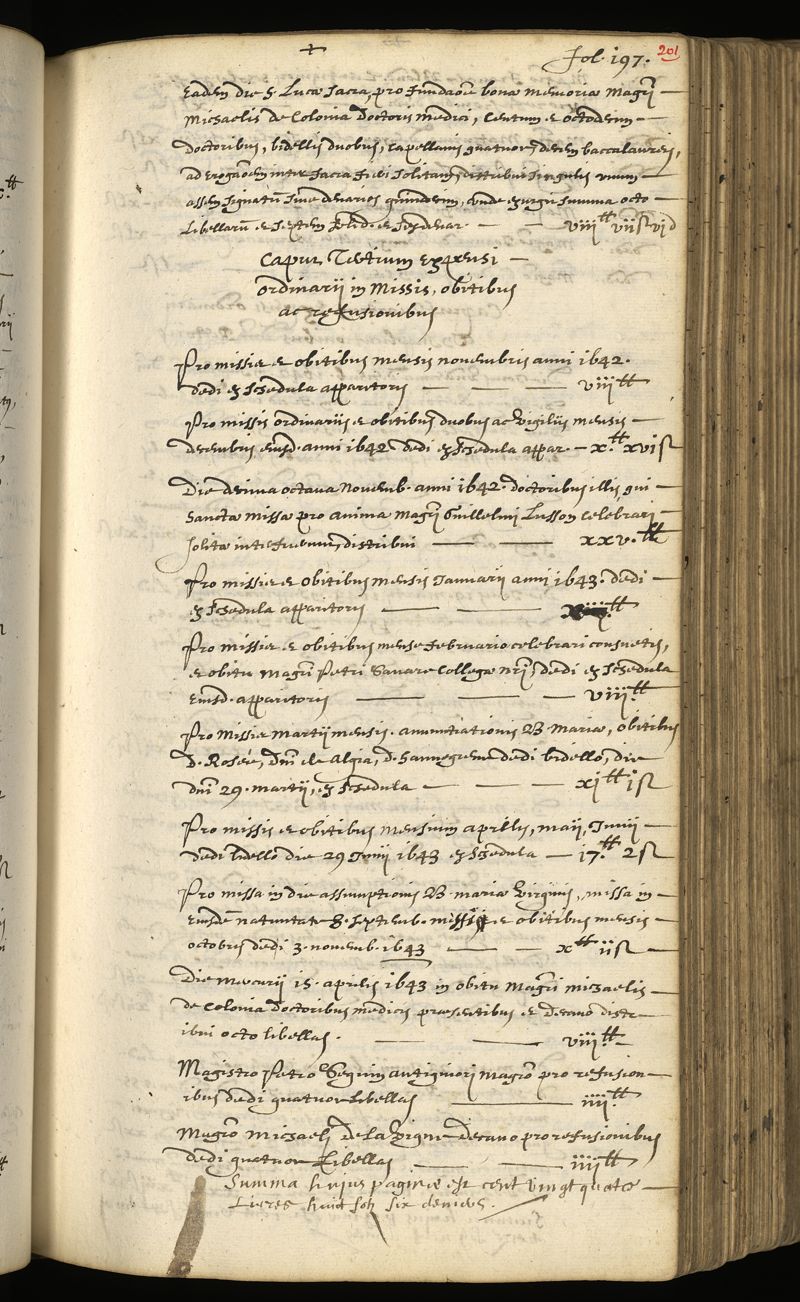 +
Fol. 197. 201
Eadem die S. Lucæ sacra, pro fundaōe bonæ memoriæ Magrī
Michaelis de Colonia doctoris medici, centum et octodecim
doctoribus, bidellis duobus, capellanis quatuor, decem baccalaureis,
ad erogaōem inter sacra fieri solitam, distribui singulis unum
assem signatū sive denarios quindecim, unde exurgit summa octo
libellarum et septem solid. et sex denar. — — viii.tt vii s vi d
Caput Tertium Expensi
ordinarii in Missis, obitibus
ac refusionibus
Pro missis et obitibus mensis novembris anni 1642.
dedi ex schedula apparitoris — — — viii.tt
Pro missis ordinariis et obitibus duobus ac vigiliis mensis
decembris eiusd. anni 1642 dedi ex schedula appar. — x.tt xvi s
Die decima octava Novemb. anni 1642. doctoribus illis, qui
sancta missa pro anima Magrī Guillelmi Lusson celebrari
solita interfuerunt, distribui — — xxv.tt
Pro missis et obitibus mensis Januarii anni 1643. dedi
ex schedula apparitoris — —
Pro missis et obitibus mense februario celebrari consuetis,
et obitu Magrī Petri Savare collegæ nrī, dedi ex schedula
eiusd. apparitoris — — — viii.tt
Pro missis martii mensis. annuntiationis B. Mariæ, obitibus
D. Rosée, dnī de , d. dedi bidello, die
dnī 29. martii, ex schedula — — — xi tt i s
Pro missis et obitibus mensium aprilis, maii, Junii
dedi bidello die 29 Junii 1643 ex schedula — 17.tt 2 s
Pro missa in die assumptionis B. mariæ virginis, missa in
eiusdē nativitate 8. septemb. missis et obitibus mensis
octobris dedi 3. novemb. 1643 — — x tt ii s
Die mercurii 15. aprilis 1643 in obitu Magrī michaelis
de Colonia doctoribus medicis præsentibus et decano distri-
bui octo libellas. — — viii.tt
Magistro Petro Seguin antiquiori magrō pro refusion-
ibus dedi quatuor libellas — iiii.tt
Magrō michaeli de la Vigne decano pro refusionibus
dedi quatuor Libellas — — iiii tt
Summa hujus paginæ est cent vingt quatre
Livres huict solz six deniers.